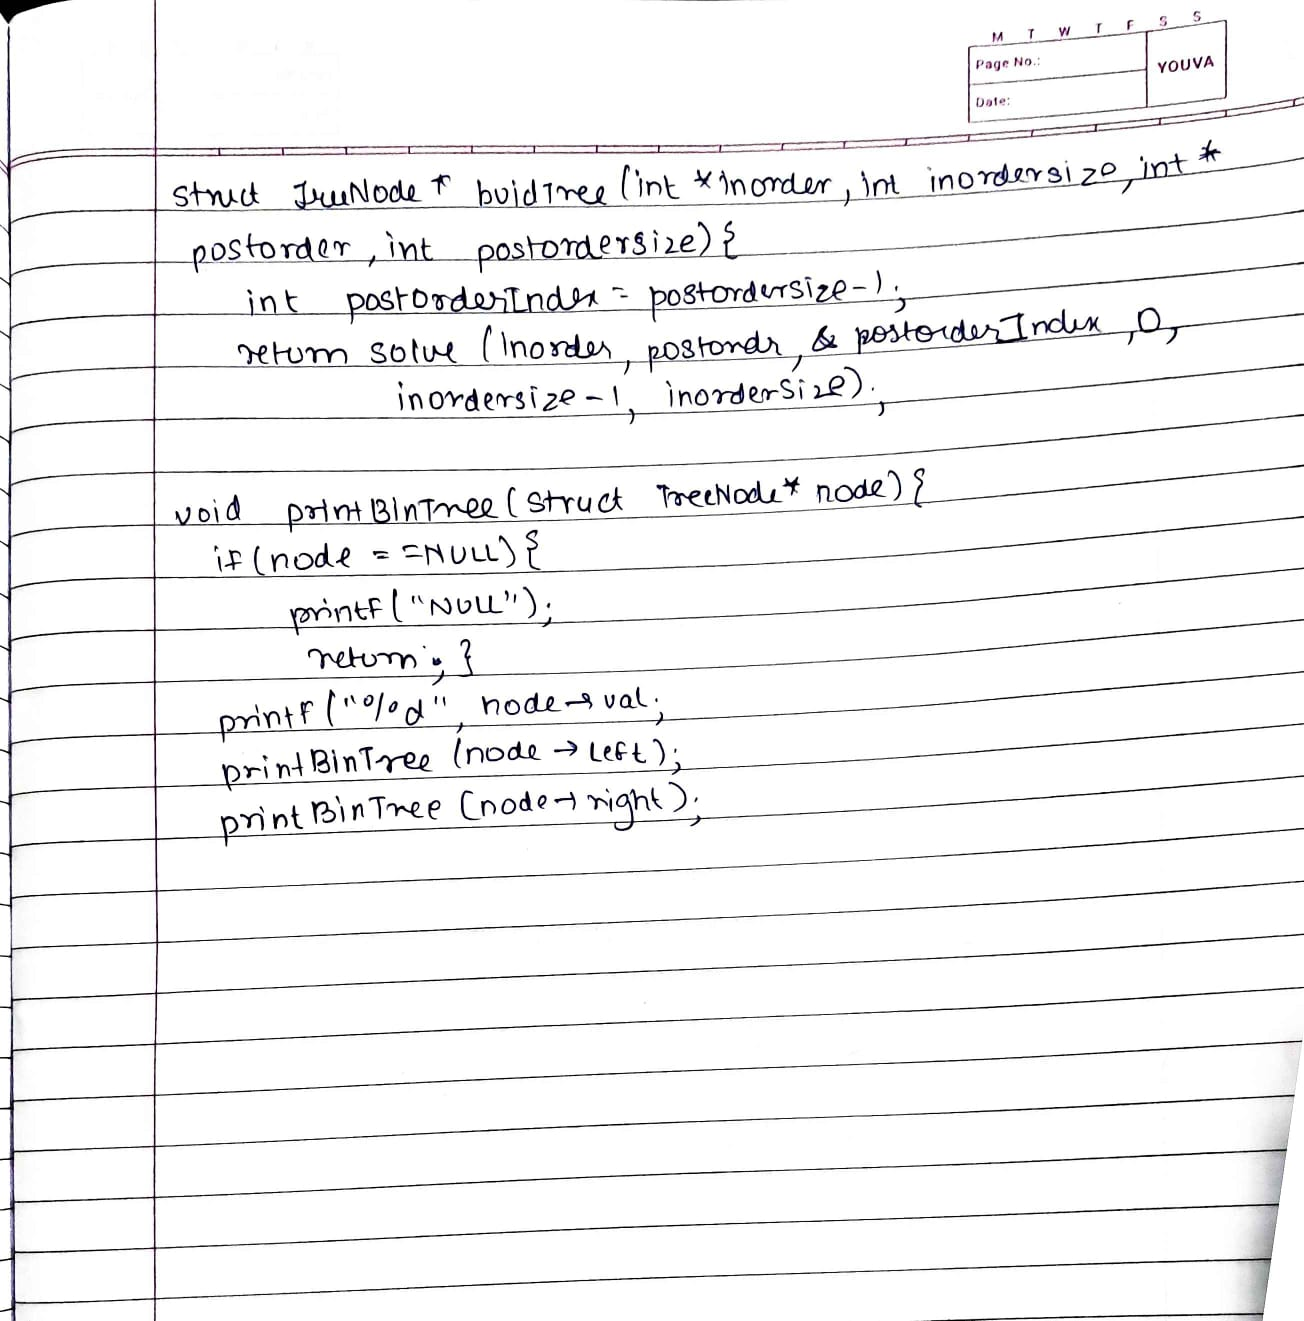 M T W T F S S
Page No.:
YOUVA
Date:
struct TreeNode * buidTree (int *inorder, int inordersize, int *
postorder, int postordersize) {
int postorderIndex = postordersize-1;
return solve (Inorder, postordr, & postorderIndex, 0,
inordersize-1, inorderSize);
void printBinTree (struct TreeNode* node) {
if (node = =NULL) {
printf ("NULL");
return; }
printf ("%d", node→val;
printBinTree (node → left);
printBinTree (node→right);